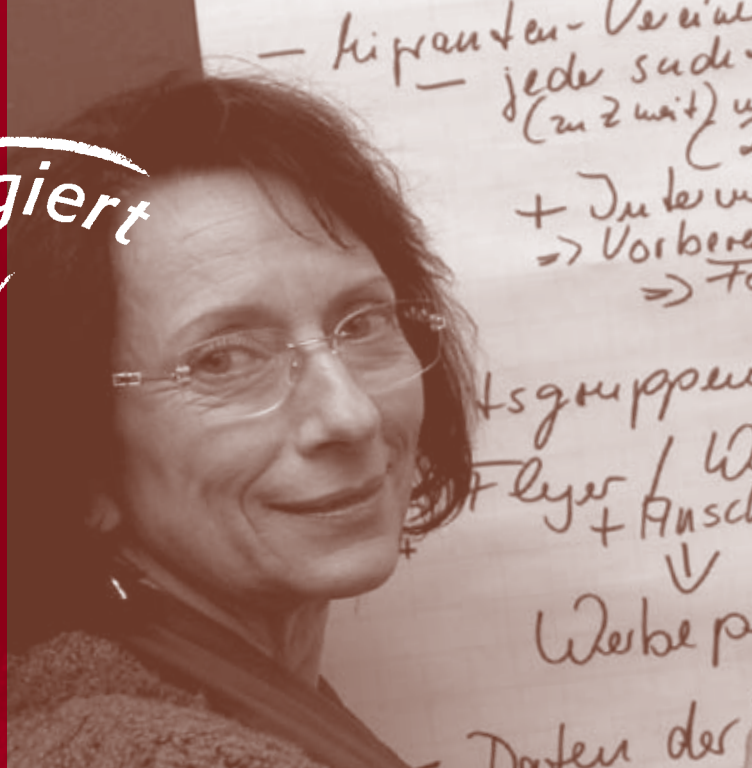 giert
— Migranten-Vereine
— jeder sucht
(zu zweit)
+ Interv
=> Vorbere
=> Fo
tsgruppen
Flyer / We
+ Ansch
Werbep
- Daten der